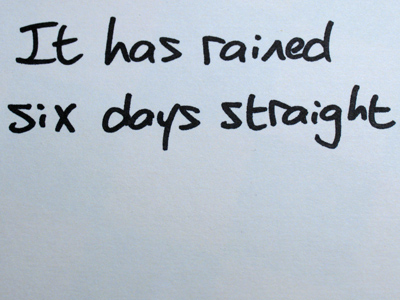 It has rained
six days straight